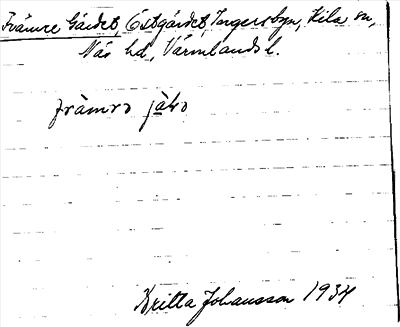 Främre Gärdet, Östgärdet, Ingersbyn, Kila sn,
Näs hd, Värmlands l.
främrə
Britta Johansson 1934